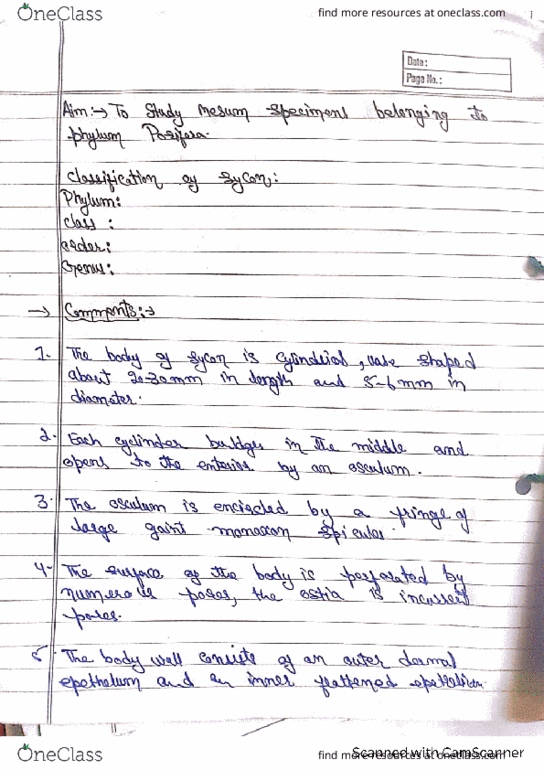 OneClass
find more resources at oneclass.com
1
Date:
Page No.:
Aim:→ To Study mesum specimens belonging to
phylum Porifera.
Classification of Sycon:
Phylum:
class :
order:
Genus:
→ Comments:→
1. The body of sycon is cylindrical, vase shaped
about 20-30mm in length and 5-6mm in
diameter.
2. Each cylinder buldges in the middle and
opens to the exterior by an osculum.
3. The osculum is encircled by a fringe of
large gaint monoaxon spicules.
4- The surface of the body is perforated by
numerous pores, the ostia is incurrent
pores.
5 The body wall consists of an outer dermal
epethelium and an inner flattened epethelium.
OneClass
find more resources at oneclass.com
Scanned with CamScanner